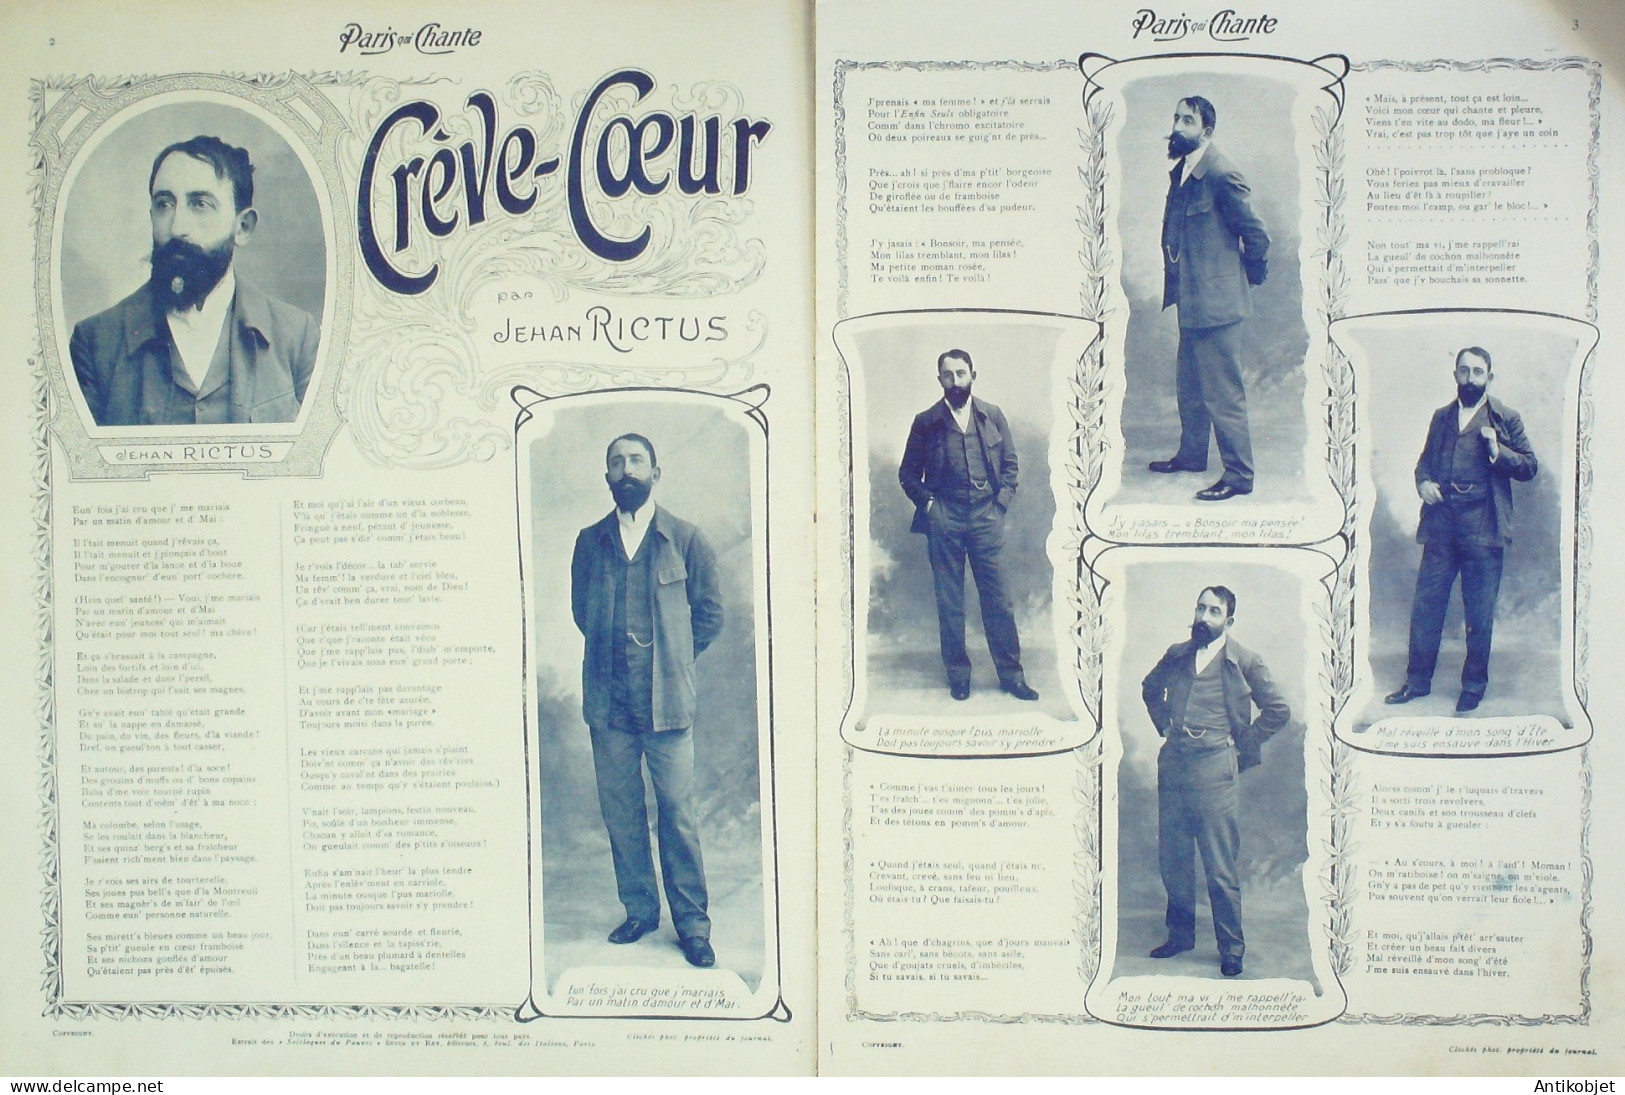 2
Paris qui Chante
Crève-Cœur
par
JEHAN RICTUS
JEHAN RICTUS
Eun' fois j'ai cru que j' me mariais
Par un matin d'amour et d' Mai :
Il l'tait menuit quand j'rêvais ça,
Il l'tait menuit et j'pionçais d'bout
Pour m'gourer d'la lance et d'la boue
Dans l'encognur' d'eun' port' cochère.
(Hein quel' santé !) — Voui, j'me mariais
Par un matin d'amour et d'Mai
N'avec eun' jeuness' qui m'aimait
Qu'était pour moi tout seul ! ma chère !
Et ça s'brassait à la campagne,
Loin des fortifs et loin d'ici,
Dans la salade et dans l'persil,
Chez un bistrop qui l'suit ses magnes.
Gn'y avait eun' tablé qu'était grande
Et su' la nappe en damassé,
Du pain, du vin, des fleurs, d'la viande !
Bref, un gueul'ton à tout casser,
Et autour, des parents ! d'la soce !
Des grouins d'muffs ou d' bons copains
Baba d'me voir tourné rupin
Contents tout d'mêm' d'êt' à ma noce :
Ma colombe, selon l'usage,
Se les roulait dans la blancheur,
Et ses quinz' berg's et sa fraîcheur
F'saient rich'ment bien dans l'paysage.
Je r'vois ses airs de tourterelle,
Ses joues pus bell's que d'la Montreuil
Et ses magnèr's de m'fair' de l'œil
Comme eun' personne naturelle.
Ses mirett's bleues comme un beau jour,
Sa p'tit' gueule en cœur framboisé
Et ses nichons gonflés d'amour
Qu'étaient pas près d'êt' épuisés.
Et moi qu'j'ai l'air d'un vieux corbeau,
V'là qu' j'étais comme un d'la noblesse,
Fringué à neuf, pétant d' jeunesse,
Ça peut pas s'dir' comm' j'étais beau !
Je r'vois l'décor... la tab' servie
Ma femm' ! la verdure et l'ciel bleu,
Un rêv' comm' ça, vrai, nom de Dieu !
Ça d'vrait ben durer tout' lavie.
(Car j'étais tell'ment convaincu
Que c'que j'raconte était vécu
Que j'me rapp'lais pus, l'diab' m'emporte,
Que je l'vivais sous eun' grand porte ;
Et j'me rapp'lais pas davantage
Au cours de c'te fête azurée,
D'avoir avant mon «mariage»
Toujours moisi dans la purée.
Les vieux carcans qui jamais s'plaint
Doiv'nt comm' ça n'avoir des rêv'ries
Ousqu'y caval'nt dans des prairies
Comme au temps qu'y s'étaient poulains.)
V'nait l'soir, lampions, festin nouveau,
Pis, soûlé d'un bonheur immense,
Chacun y allait d'sa romance,
On gueulait comm' des p'tits z'oiseaux !
Enfin s'am'nait l'heur' la plus tendre
Après l'enlèv'ment en carriole,
La minute ousque l'pus mariolle,
Doit pas toujours savoir s'y prendre !
Dans eun' carré sourde et fleurie,
Dans l'silence et la tapiss'rie,
Près d'un beau plumard à dentelles
Engageant à la... bagatelle !
Eun' fois j'ai cru que j'mariais
Par un matin d'amour et d'Mai.
COPYRIGHT.
Droits d'exécution et de reproduction réservés pour tous pays.
Extrait des « Soliloques du Pauvre » SEVIN ET REY, éditeurs, 8, boul. des Italiens, Paris.
Clichés phot. propriété du journal.
Paris qui Chante
3
J'prenais « ma femme ! » et j'la serrais
Pour l'Enfin Seuls obligatoire
Comm' dans l'chromo excitatoire
Où deux poireaux se guign'nt de près...
Près... ah ! si près d'ma p'tit' borgeoise
Que j'crois que j'flaire encor l'odeur
De giroflée ou de framboise
Qu'étaient les bouffées d'sa pudeur.
J'y jasais : « Bonsoir, ma pensée,
Mon lilas tremblant, mon lilas !
Ma petite moman rosée,
Te voilà enfin ! Te voilà !
J'y jasais — « Bonsoir ma pensée !
Mon lilas tremblant, mon lilas !
« Mais, à présent, tout ça est loin...
Voici mon cœur qui chante et pleure,
Viens t'en vite au dodo, ma fleur !... »
Vrai, c'est pas trop tôt que j'aye un coin
Ohé ! l'poivrot là, l'sans probloque ?
Vous feries pas mieux d'cravailler
Au lieu d'êt là à roupiller ?
Foutez-moi l'camp, ou gar' le bloc !... »
Non tout' ma vi, j'me rappell'rai
La gueul' de cochon malhonnête
Qui s'permettait d'm'interpeller
Pass' que j'y bouchais sa sonnette.
La minute ousque l'pus mariolle
Doit pas toujours savoir s'y prendre !
Mal réveillé d'mon song' d'Eté
J'me suis ensauvé dans l'Hiver
« Comme j'vas t'aimer tous les jours !
T'es fraîch'... t'es mignonn'... t'es jolie,
T'as des joues comm' des pomm's d'apis,
Et des tétons en pomm's d'amour.
« Quand j'étais seul, quand j'étais nu,
Crevant, crevé, sans feu ni lieu,
Loufoque, à crans, tafeur, pouilleux,
Où étais-tu ? Que faisais-tu ?
« Ah ! que d'chagrins, que d'jours mauvais
Sans carl', sans bécots, sans asile,
Que d'goujats cruels, d'imbéciles,
Si tu savais, si tu savais...
Mon tout ma vi j'me rappell'rai
La gueul' de cochon malhonnête
Qui s'permettrait d'm'interpeller
Alorss comm' j' le r'luquais d'travers
Il a sorti trois revolvers,
Deux canifs et son trousseau d'clefs
Et y s'a foutu à gueuler :
— « Au s'cours, à moi ! à l'aid' ! Moman !
On m'ratiboise ! on m'saigne, on m'viole.
Gn'y a pas de pet qu'y viennent les s'agents,
Pus souvent qu'on verrait leur fiole !... »
Et moi, qu'j'allais p'têt' arr'sauter
Et créer un beau fait divers
Mal réveillé d'mon song' d'été
J'me suis ensauvé dans l'hiver.
COPYRIGHT.
Clichés phot. propriété du journal.
Antikobjet